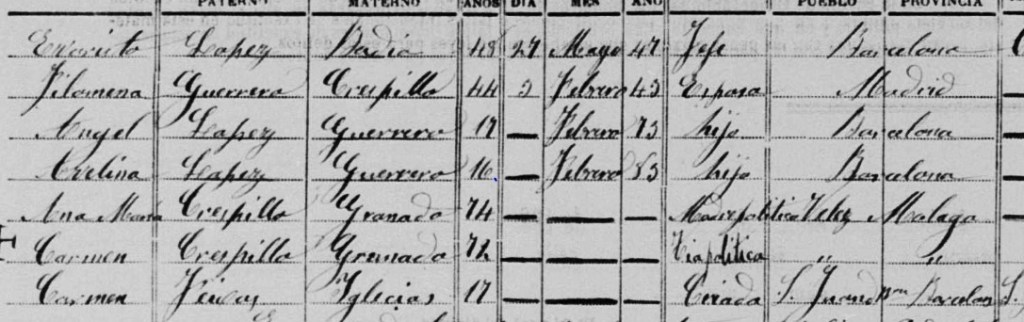 PATERNO MATERNO AÑOS DIA MES AÑO PUEBLO PROVINCIA
Evaristo Lopez Badia 48 27 Mayo 47 Jefe Barcelona
Filomena Guerrero Crespillo 44 3 Febrero 43 Esposa Madrid
Angel Lopez Guerrero 17 — Febrero 73 hijo Barcelona
Avelina Lopez Guerrero 16 — Febrero 83 hija Barcelona
Ana Maria Crespillo Granado 74 — — — Madrepolitica Velez Malaga
Carmen Crespillo Granado 72 — — — Tiapolitica " "
Carmen Iglecias 17 — — — Criada S. Barcelona